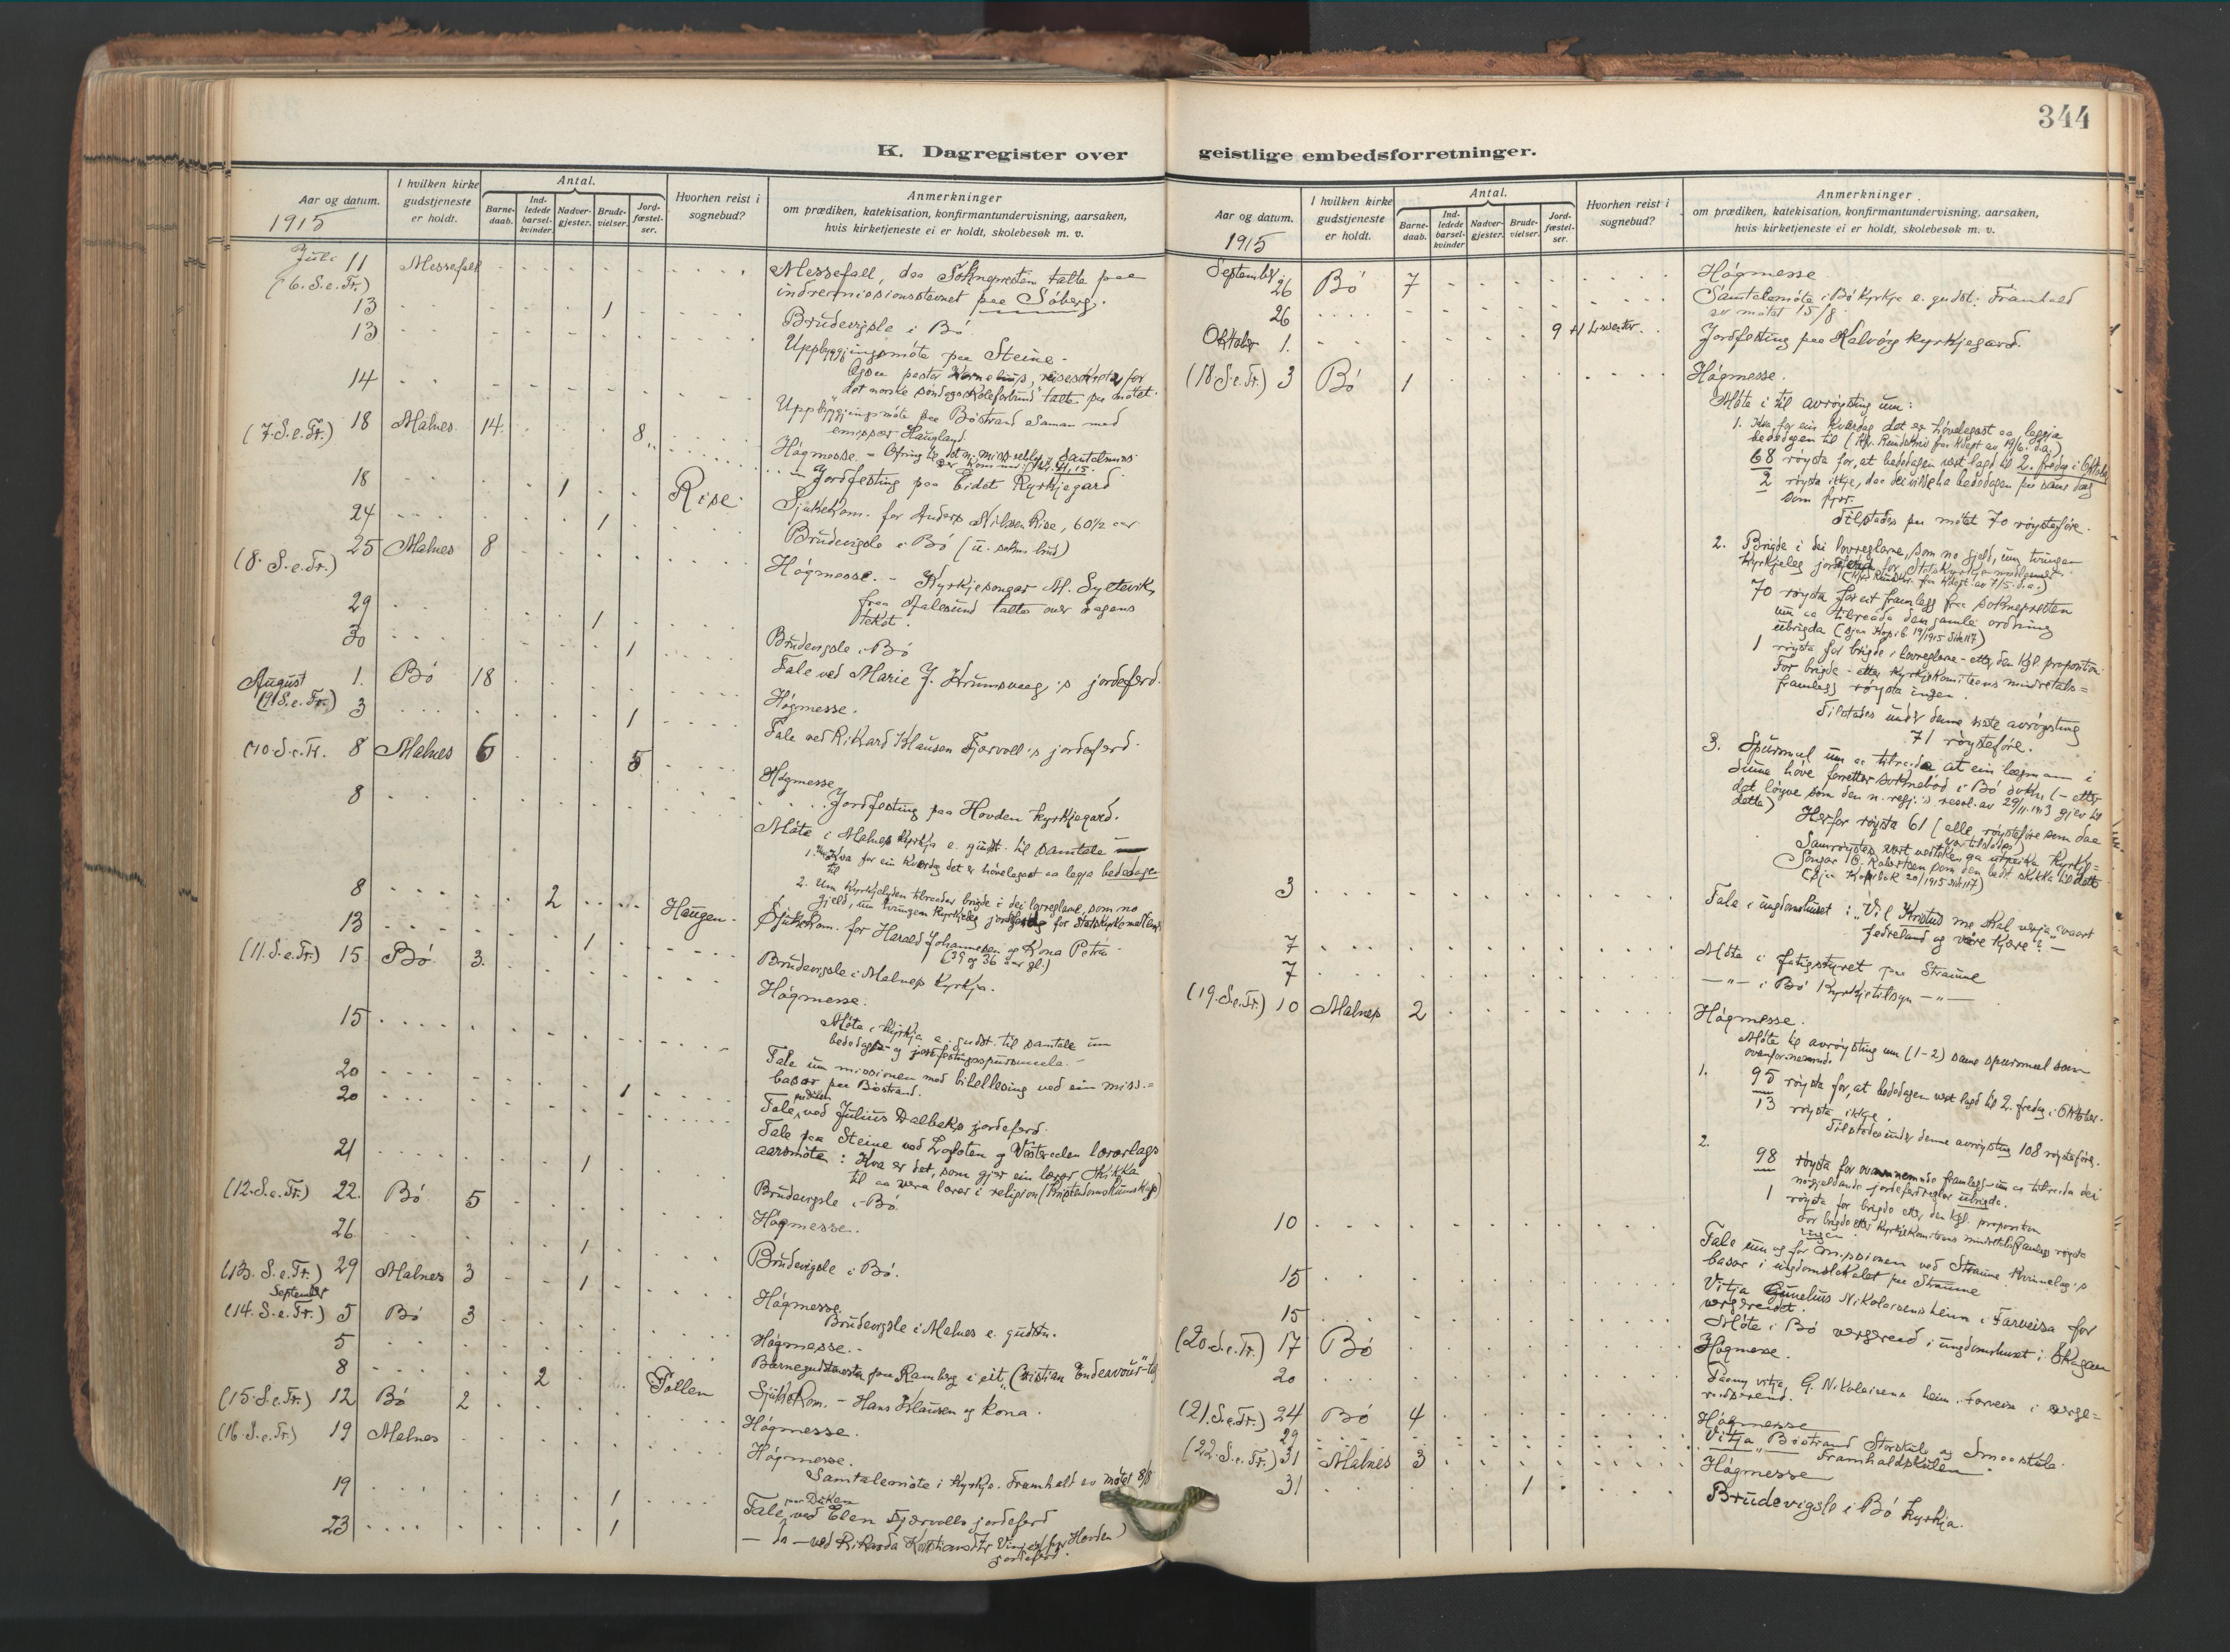 344
K. Dagregister over
geistlige embedsforretninger.
Aar og datum.
1915
I hvilken kirke gudstjeneste er holdt.
Antal.
Barne-daab.
Ind-ledede barsel-kvinder.
Nadver-gjester.
Brude-vielser.
Jord-fæstel-ser.
Hvorhen reist i sognebud?
Anmerkninger
om prædiken, katekisation, konfirmantundervisning, aarsaken,
hvis kirketjeneste ei er holdt, skolebesøk m. v.
Juli 11 Messefall
(6. S. e. Tr.)
Messefall, daa Soknepresten talte paa
indremissionsstevnet paa Søberg.
13 1 Brudevigsle i Bø
13 Uppbyggjingsmøte paa Steine.
det norske søndagsskoleforbund talte paa møtet.
14 Uppbyggjingsmøte paa Bøstrand saman med
emissær Haugland.
(7. S. e. Tr.) 18 Malnes 14 8 Høgmesse.
Jordfesting paa Eidet Kyrkjegard
18 1 Rise Sjukekom. for Anders Nilsen Rise, 60½ aar
24 1 Brudevigsle i Bø
(8. S. e. Tr.) 25 Malnes 8 Høgmesse. - Kyrkjesongar M. Syltevik,
fraa Aalesund talte over dagens
tekst.
29 1 Brudevigsle i Bø
30 1 Tale ved Marie J. Krumsvaag's jordeferd.
August 1. Bø 18 Høgmesse.
(9 S. e. Tr.)
3 1 Tale ved Rikard Klausen Fjærvoll's jordeferd.
(10. S. e. Tr. 8 Malnes 6 5 Høgmesse
Jordfesting paa Hovden kyrkjegard.
8 Møte i Malnes Kyrkja e. gudst. til samtale
1. Kva for ein kvardag det er høvelegast aa leggja bededagen
til
2. Um Kyrkjelyden tilrader brigde i dei lovreglane, som no
gjeld, um tvungen Kyrkjeleg jordferd for Statskyrkemedlemer
8 2 Haugen Sjukekom. for Harald Johannesen og Kona Petra
(39 og 36 aar gl.)
13 1 Brudevigsle i Malnes Kyrkja.
(11. S. e. Tr.) 15 Bø 3. Høgmesse.
15 Møte i Kyrkja e. gudst. til samtale um
bededags- og jordfestingsspursmaala.
20 Tale um missionen med bibellesing ved ein miss.=
basar paa Bøstrand.
20 1 Tale ved Julius Dalbaks jordeferd.
21 Tale paa Steine ved Lofoten og Vesteraalen lærarlags
aarsmøte: Kva er det, som gjer ein lærar skikka
til aa vera lærar i religion (Kristendomskunskap)
1 Brudevigsle i Bø.
(12. S. e. Tr.) 22. Bø 5 Høgmesse.
26 1 Brudevigsle i Bø.
(13. S. e. Tr.) 29 Malnes 3 1 Høgmesse.
Brudevigsle i Malnes e. gudstn.
September
(14. S. e. Tr.) 5 Bø 3 Høgmesse.
5 Barnegudstenesta
8 2 Følen Sjukekom. - Hans Klausen og kona.
(15. S. e. Tr.) 12 Bø 2 Høgmesse.
(16. S. e. Tr.) 19 Malnes Høgmesse.
Samtalemøte i Kyrkja. Framhald av møtet 8/8
19 1 Tale ved Elen Fjærvolls jordeferd
23 1 - do - ved Rikarda
jordeferd.
Aar og datum.
1915
I hvilken kirke gudstjeneste er holdt.
Antal.
Barne-daab.
Ind-ledede barsel-kvinder
Nadver-gjester.
Brude-vielser.
Jord-fæstel-ser.
Hvorhen reist i sognebud?
Anmerkninger
om prædiken, katekisation, konfirmantundervisning, aarsaken,
hvis kirketjeneste ei er holdt, skolebesøk m. v.
September
26 Bø 7 Høgmesse
26 Samtalemøte i Bø Kyrkje e. gudst. Framhald
av møtet 15/8.
Oktober 1. 9 Jordfesting paa Kalvøy kyrkjegard.
(18 S. e. Tr.) 3 Bø 1 Høgmesse.
Møte i til avrøysting um:
1. Kva for ein kvardag det er høvelegast aa leggja
bededagen til
68 røysta for, at bededagen vert lagd til 2. fredag i Oktober
2 røysta ikkje, daa dei vilde ha bededagen paa same dag
som fyrr.
Tilstades paa møtet 70 røysteføre.
2. Brigde i dei lovreglane, som no gjeld, um tvungen
Kyrkjeleg jordferd for Statskyrkjemedlemer
70 røysta for eit framlegg fraa soknepresten
um aa tilraada den gamle ordning
ubrigda (sjaa Kopib. 19/1915 side 117)
1 røysta for brigde i lovreglane - etter den kgl. proposition.
For brigde - etter Kyrkjekomiteens mindretals=
framlegg røysta ingen.
Tilstades under denne siste avrøysting
71 røysteføre.
3. Spursmaal um aa tilraada at ein lægmann i
sume høve forretter soknebod i Bø sokn (- etter
det løyve som den n. regj.'s resol. av 29/11. 1913 gjev til
dette)
Herfor røysta 61 (alle røysteføre som daa
var tilstades)
Samrøystes vart vedteken aa utpeika Kyrkje=
songar O. Robertsen som den best skikka til dette
(Sjaa Kopibok 20/1915 side 117)
3 Tale i ungdomshuset: „Vil Kristus me skal verja vaart
fedreland og vaare kjære? -
7 Møte i fatigstyret paa Straume
7 - " - i Bø Kyrkjetilsyn - " -
(19. S. e. Tr.) 10 Malnes 2 Høgmesse.
Møte til avrøysting um (1-2) same spursmaal som
ovanfor nemnde
1. 95 røysta for, at bededagen vert lagd til 2. fredag i Oktober.
13 røysta ikkje.
Tilstades under denne avrøysting 108 røysteføre.
2. 98 røysta for ovannemnde framlegg um aa tilraada dei
nogjeldande jordeferdreglar ubrigda.
1 røysta for brigde etter den kgl. proposition
For brigde etter Kyrkjekomiteens mindretalsframlegg røysta
ingen.
10 Tale um og for Missionen ved Straume Kvinnelag's
basar i ungdomslokalet paa Straume
15 Vitja Gunelius Nikolaisens heim i Farveisa for
vergeraadet.
15 Møte i Bø vergeraad i ungdomshuset i Skagen
(20. S. e. Tr.) 17 Bø Høgmesse.
20 Paany vitja G. Nikolaisens heim i Farveisa i verge=
raadsærend.
(21. S. e. Tr.) 24 Bø 4 Høgmesse
29 Vitja Bøstrand Storskule og Smaaskule.
Framhaldskulen
(22. S. e. Tr.) 31 Malnes 3 Høgmesse
31 1 Brudevigsle i Bø Kyrkja.